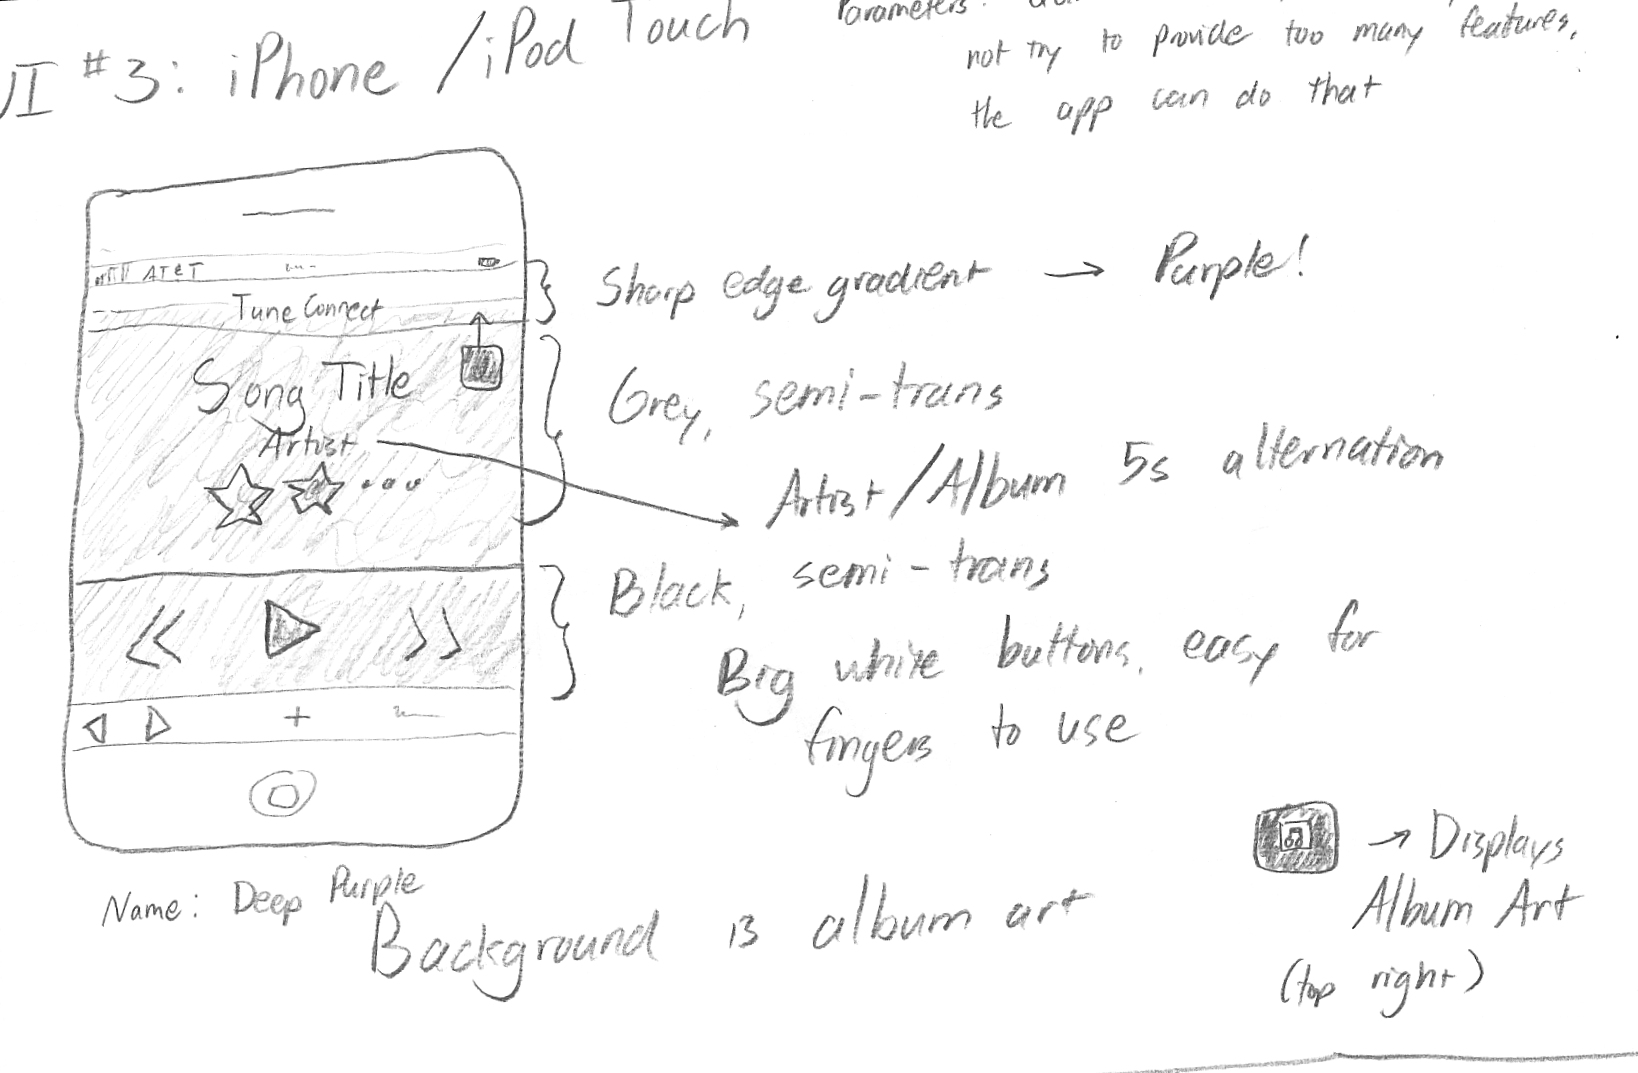 UI #3: iPhone / iPod Touch
Parameters:
not try to provide too many features,
the app can do that
AT&T
Tune Connect
Song Title
Artist
Sharp edge gradient → Purple!
Grey, semi-trans
Artist/Album 5s alternation
Black, semi-trans
Big white buttons, easy for
fingers to use
Name: Deep Purple
Background is album art
→ Displays
Album Art
(top right)